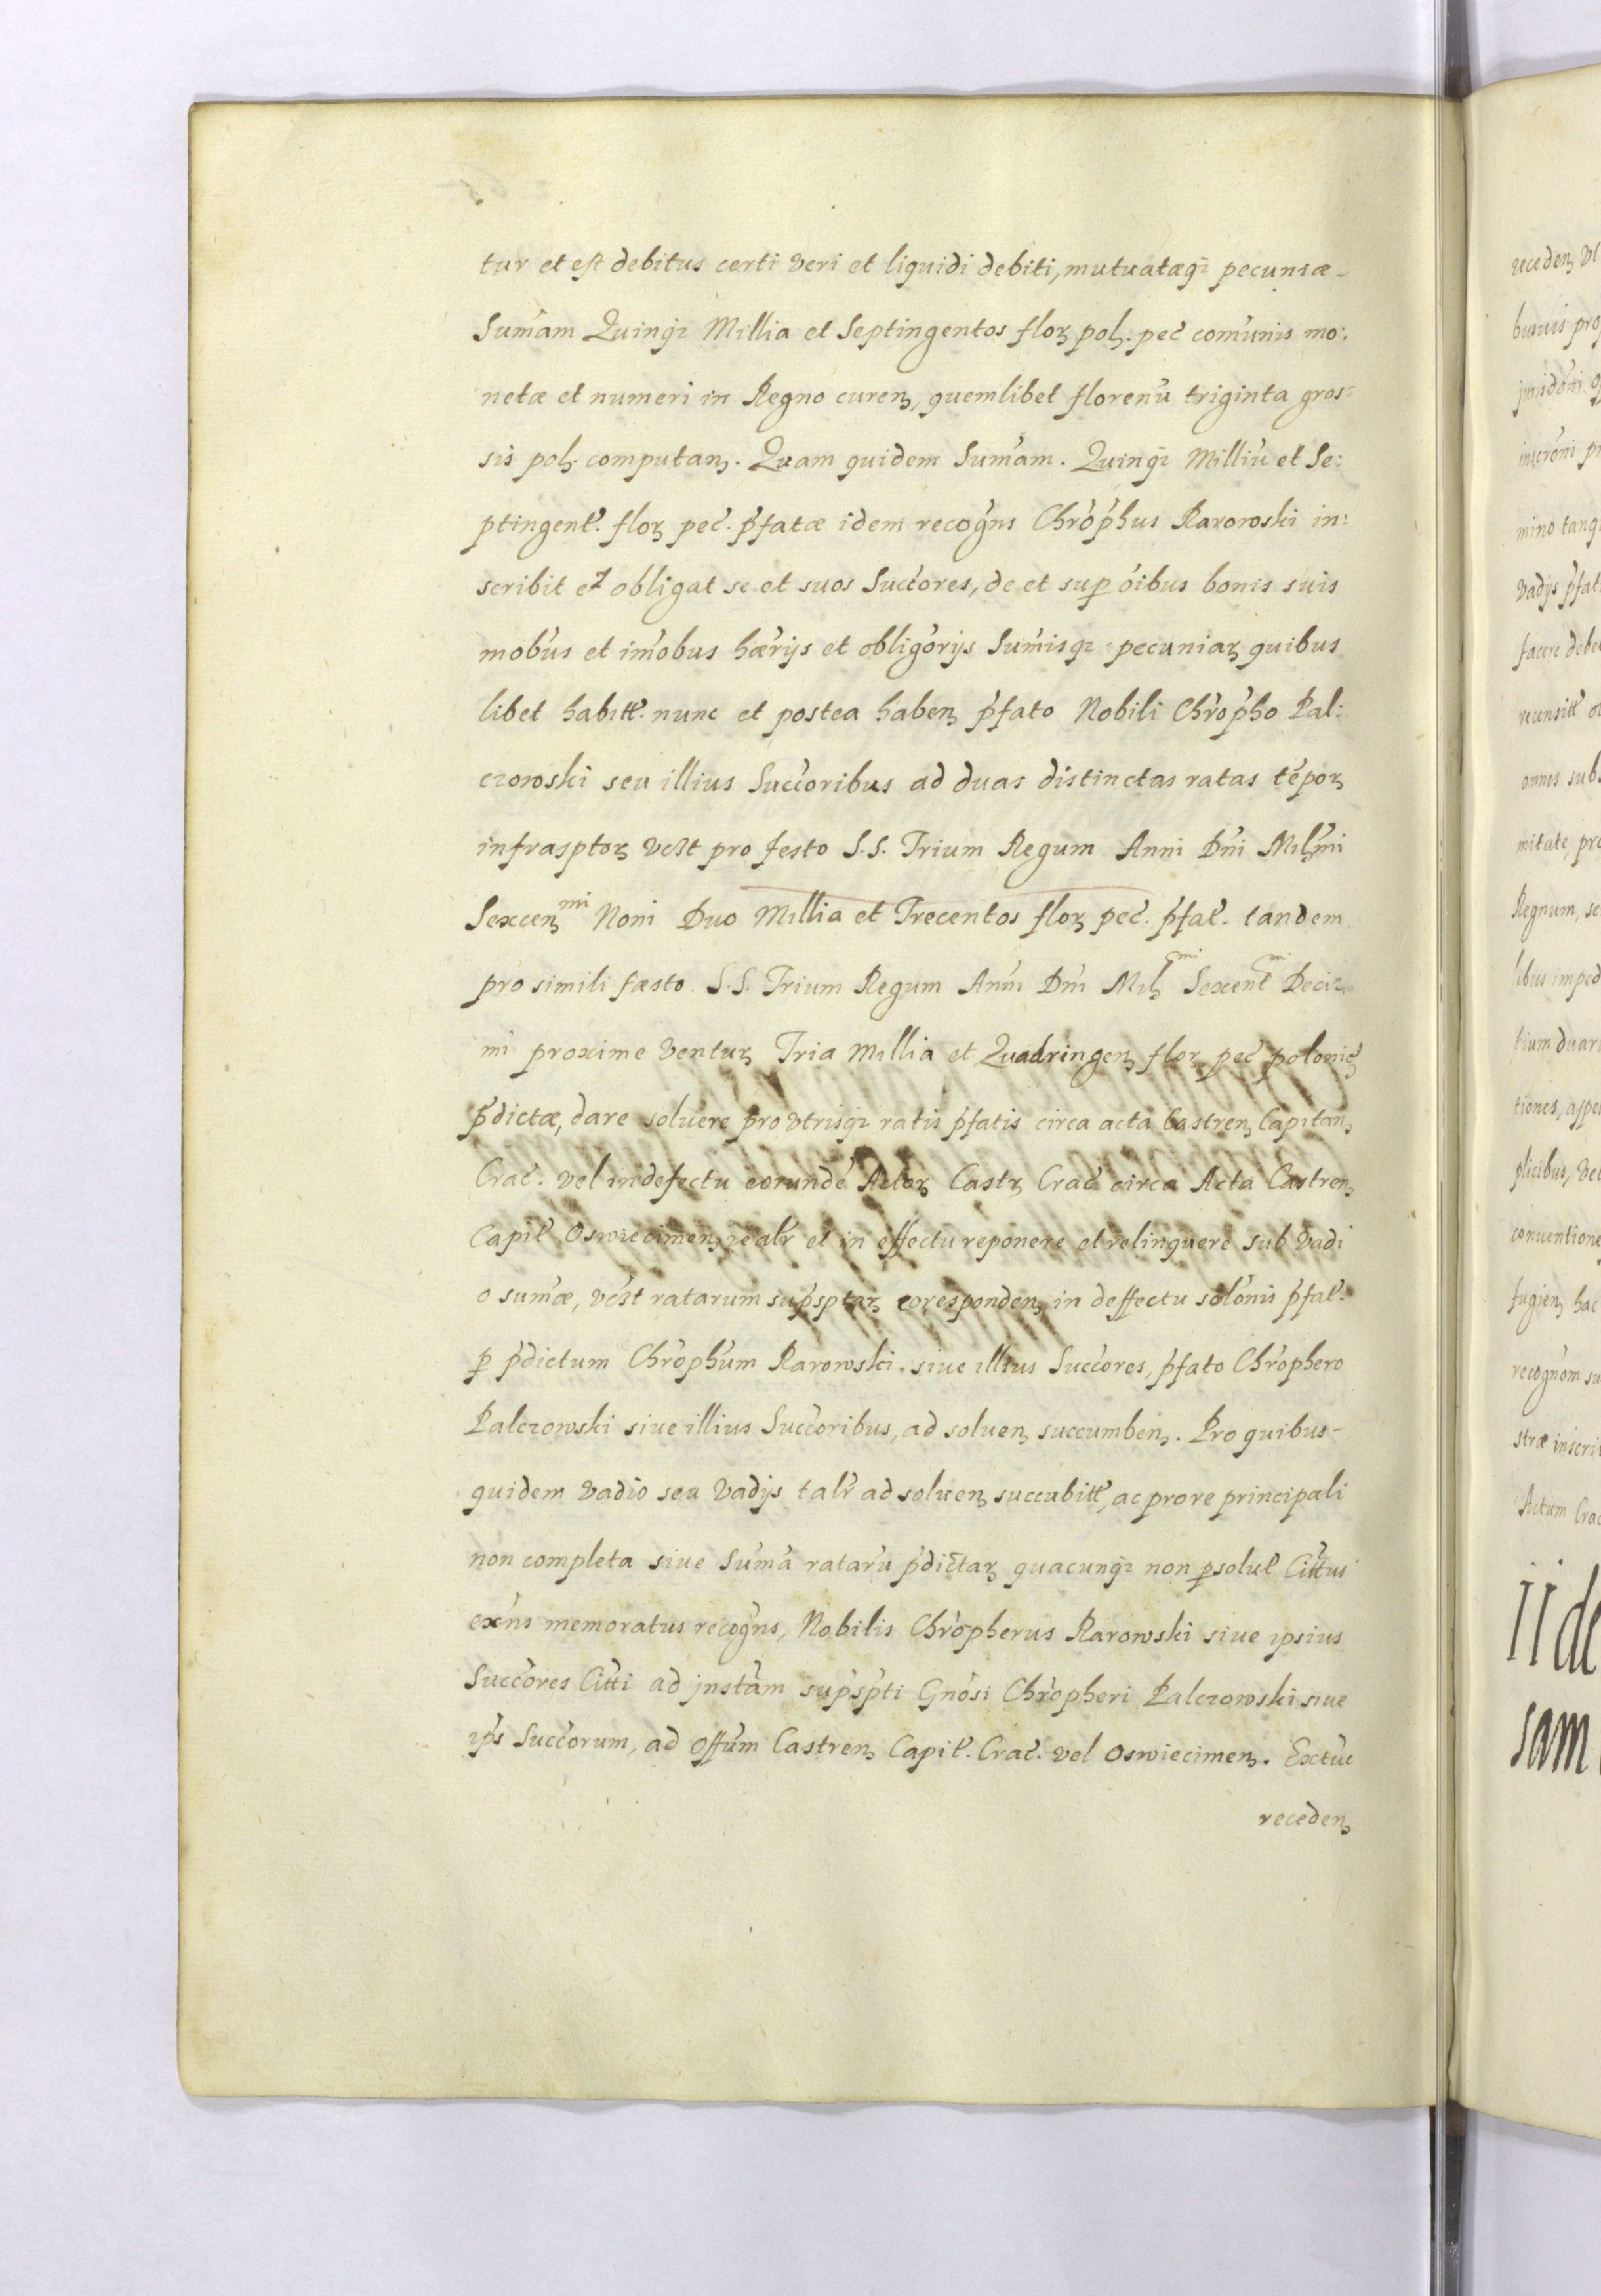 tur et est debitus certi veri et liquidi debiti, mutuatæq3 pecuniæ
Sum̃am Quinq3 Millia et Septingentos floꝝ polꝫ. pec̃ com̃unis mo:
netæ et numeri in Regno curenꝫ, quemlibet florenũ triginta gros:
sis polꝫ computanꝫ. Quam quidem Sum̃am. Quinq3 Milliũ et Se:
ptingent̃. floꝝ pec̃. p̃fatæ idem recog̃ns Chrõp̃hus Rarowski in:
scribit et obligat se et suos Succ̃ores, de et suꝑ õibus bonis suis
mob̃us et im̃obus hær̃ijs et oblig̃orijs Sum̃isq3 pecuniaꝝ quibus
libet habitt̃. nunc et postea habenꝫ p̃fato Nobili Chrõp̃ho Pal:
czowski seu illius Succ̃oribus ad duas distinctas ratas tẽpoꝝ
infrasptoꝝ vc̃lt pro festo S.S. Trium Regum Anni Dñi Milꝫm̃i
Sexcenꝫmi Noni Duo Millia et Trecentos floꝝ pec̃. p̃fat̃. tandem
pro simili fæsto S.S. Trium Regum Añni Dñi Milꝫmi Sexcent̃mi Deci:
mi proxime ventuꝝ Tria Millia et Quadringenꝫ floꝝ pec̃ polonic̃
p̃dictæ, dare soluere pro vtrisq3 ratis p̃fatis circa acta Castrenꝫ Capitanꝫ
Crac̃. vel in defectu eorundẽ Actoꝝ Castꝝ Crac̃ circa Acta Castrenꝫ
Capit̃ Oswiecimenꝫ realr̃ et in effectu reponere et relinquere sub vadi
o sum̃æ, vc̃lt ratarum sup̃sptaꝝ corespondenꝫ in deffectu sol̃onis p̃fat̃.
ꝑ p̃dictum Chrõph̃um Rarowski. siue illius Succ̃ores, p̃fato Chrõphero
Palczowski siue illius Succ̃oribus, ad soluenꝫ succumbenꝫ. Pro quibus
quidem vadio seu vadijs talr̃ ad soluenꝫ succubitt̃, ac pro re principali
non completa siue Sum̃a ratarũ p̃dictaꝝ quacunq3 non ꝑsolut̃ Citt̃us
exñs memoratus recog̃ns, Nobilis Chrõpherus Rarowski siue ipsius
Succ̃ores Citt̃i ad jnstãm sup̃sp̃ti Gñosi Chrõpheri Palczowski siue
ip̃s Succ̃orum, ad Off̃um Castrenꝫ Capit̃. Crac̃. vel Oswiecimenꝫ. Extũc
recedenꝫ